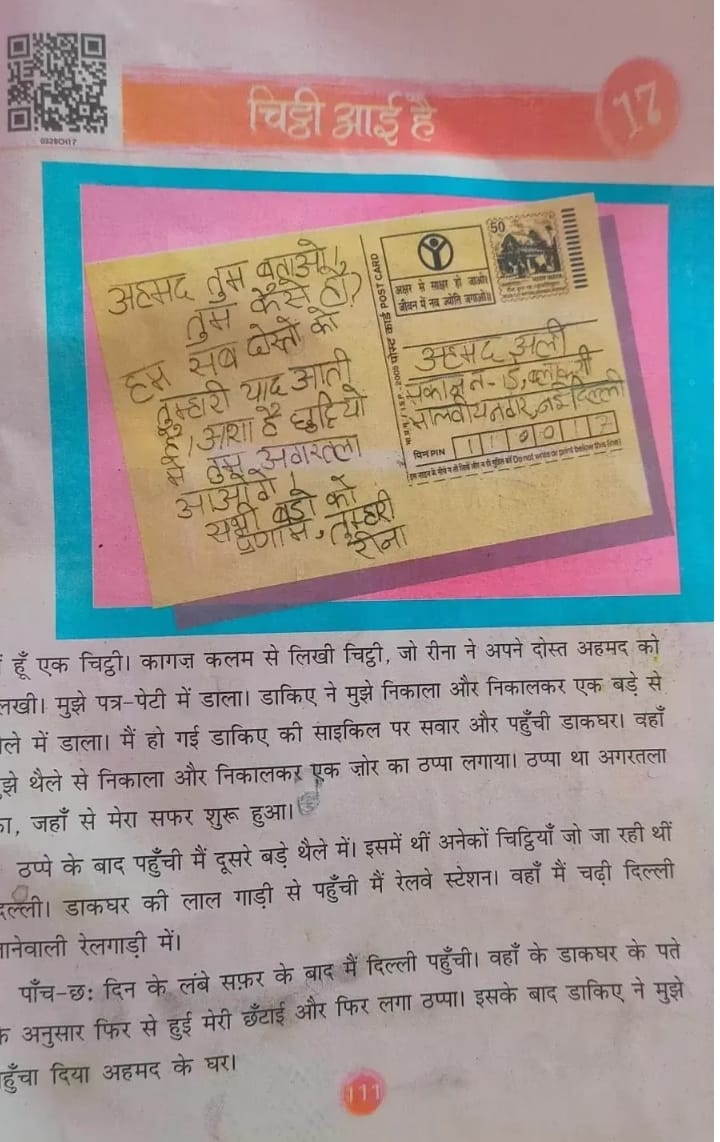 0328CH17
चिट्ठी आई है
17
अहमद तुम बताओ,
तुम कैसे हो?
हम सब दोस्तों को
तुम्हारी याद आती
है, आशा है छुट्टियों
में तुम अगरतला
आओगे।
सभी बड़ो को
प्रणाम, तुम्हारी
रीना
पोस्ट कार्ड POST CARD
अक्षर से साक्षर हो जाओ।
जीवन में नव ज्योति जगाओ॥
50
अहमद अली
मकान न-15, ब्लॉक
मालवीय नगर, नई दिल्ली
पिन PIN 110017
इस लाइन के नीचे न तो लिखें और न ही मुद्रित करें Do not write or print below this line
हूँ एक चिट्ठी। कागज कलम से लिखी चिट्ठी, जो रीना ने अपने दोस्त अहमद को
लखी। मुझे पत्र-पेटी में डाला। डाकिए ने मुझे निकाला और निकालकर एक बड़े से
ले में डाला। मैं हो गई डाकिए की साइकिल पर सवार और पहुँची डाकघर। वहाँ
झे थैले से निकाला और निकालकर एक ज़ोर का ठप्पा लगाया। ठप्पा था अगरतला
का, जहाँ से मेरा सफर शुरू हुआ।
ठप्पे के बाद पहुँची मैं दूसरे बड़े थैले में। इसमें थीं अनेकों चिट्ठियाँ जो जा रही थीं
दिल्ली। डाकघर की लाल गाड़ी से पहुँची मैं रेलवे स्टेशन। वहाँ मैं चढ़ी दिल्ली
जानेवाली रेलगाड़ी में।
पाँच-छः दिन के लंबे सफ़र के बाद मैं दिल्ली पहुँची। वहाँ के डाकघर के पते
के अनुसार फिर से हुई मेरी छँटाई और फिर लगा ठप्पा। इसके बाद डाकिए ने मुझे
पहुँचा दिया अहमद के घर।
111